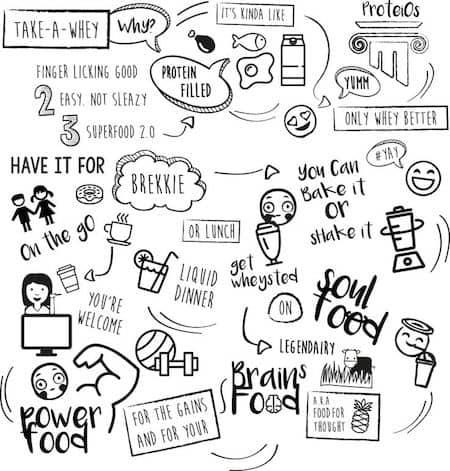 TAKE-A-WHEY
Why?
IT'S KINDA LIKE
ProteiOs
FINGER LICKING GOOD
PROTEIN
FILLED
YUMM
2 EASY. NOT SLEAZY
3 SUPERFOOD 2.0
ONLY WHEY BETTER
HAVE IT FOR
BREKKIE
You Can
Bake it
or
shake it
#YAY
On the go
OR LUNCH
LIQUID
DINNER
get
wheysted
ON
LEGENDAIRY
Soul
Food
YOU'RE
WELCOME
Power
Food
FOR THE GAINS
AND FOR YOUR
Brains
Food
A.K.A
FOOD FOR
THOUGHT